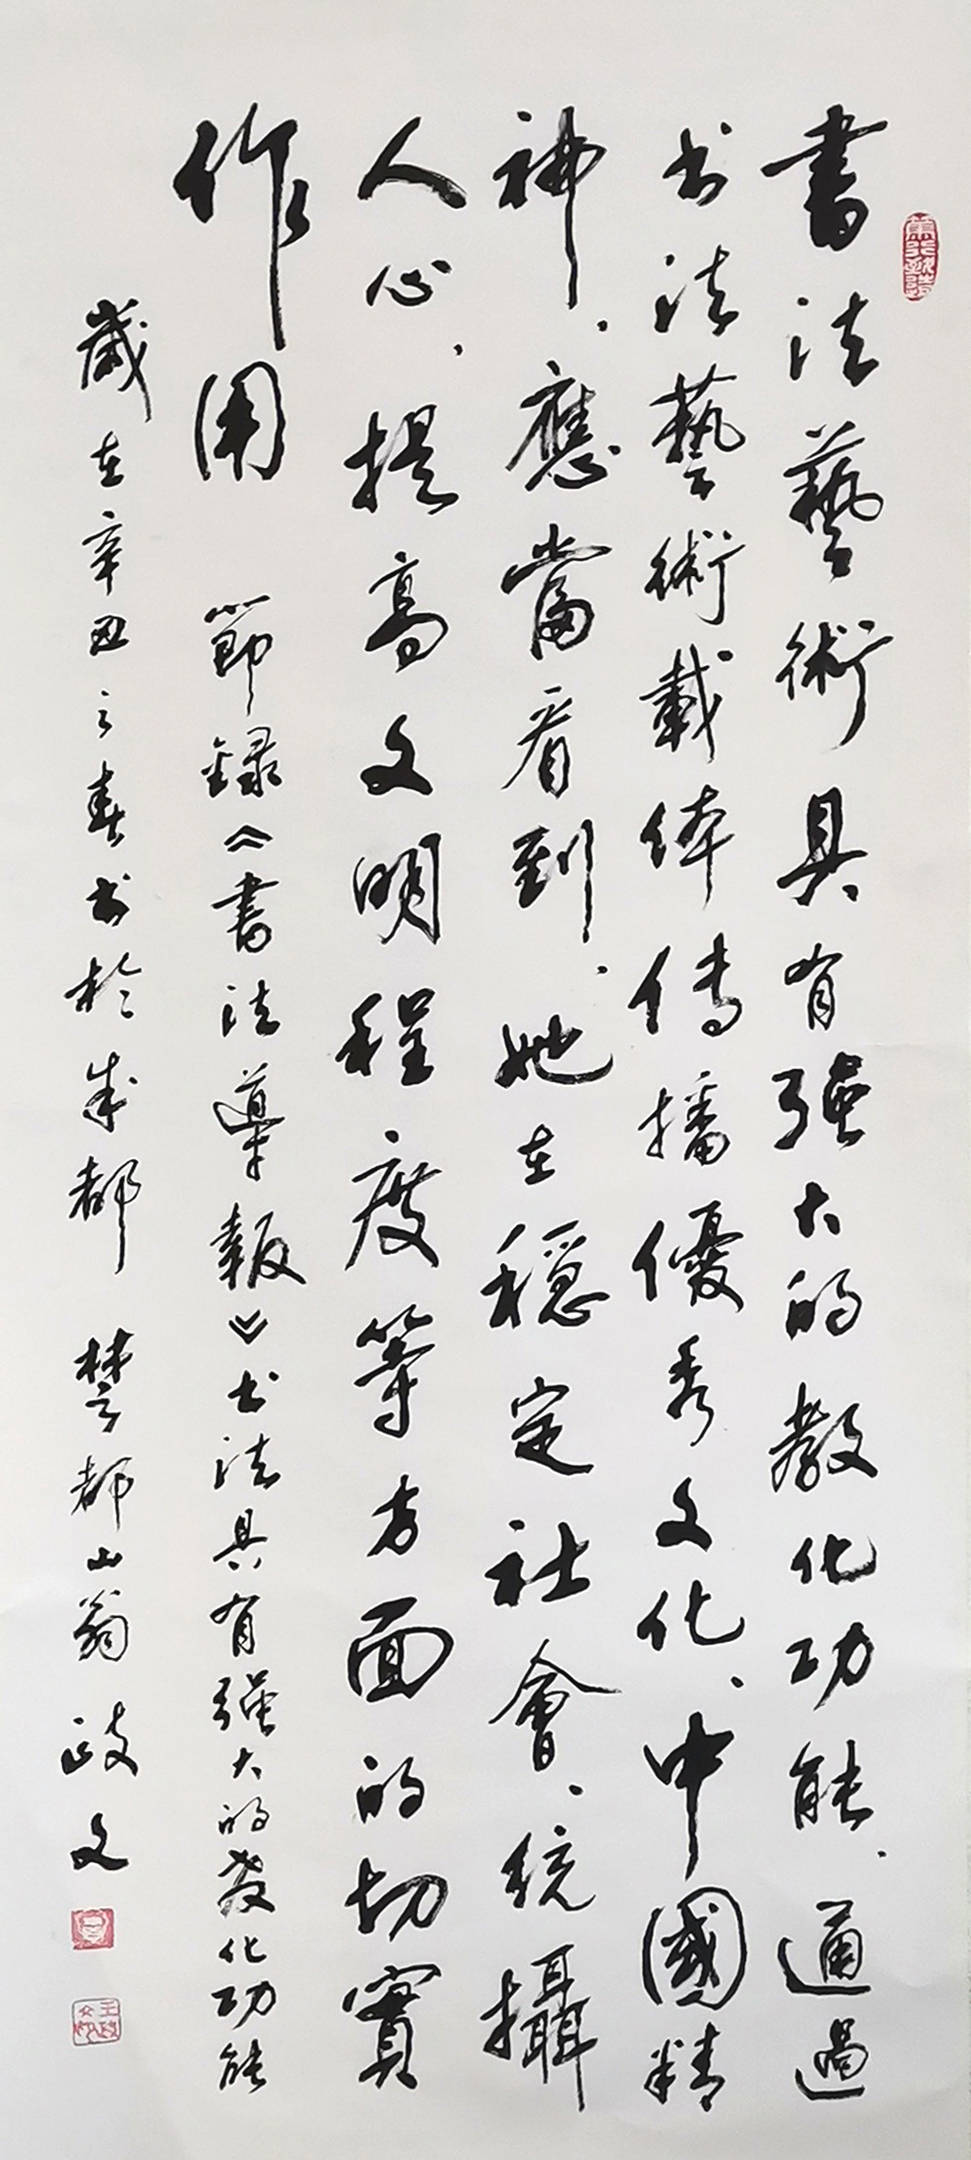 書法藝術具有强大的教化功能.通過
书法藝術載体傳播優秀文化、中國精
神.應當看到.她在穩定社會、統攝
人心、提高文明程度等方面的切實
作用
節録《書法導報》书法具有强大的教化功能
歲在辛丑之春书於成都 楚都山翁 政文